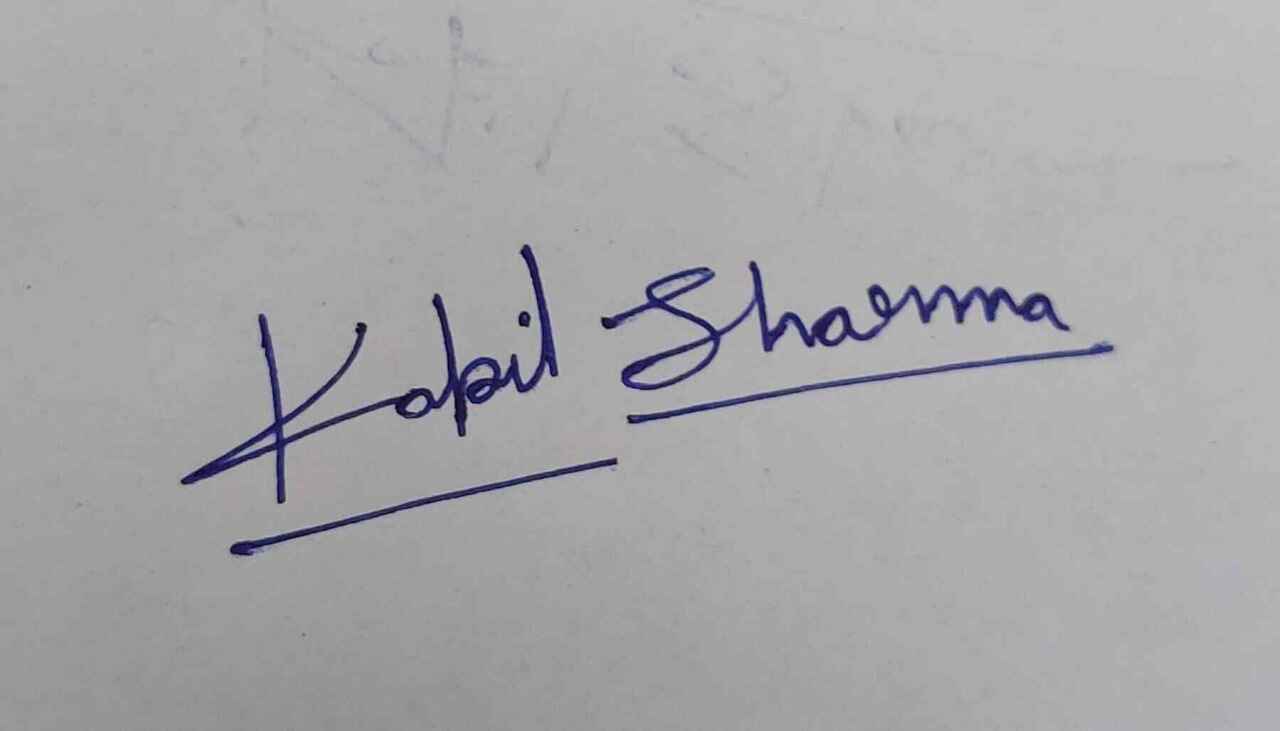 Kapil Sharma